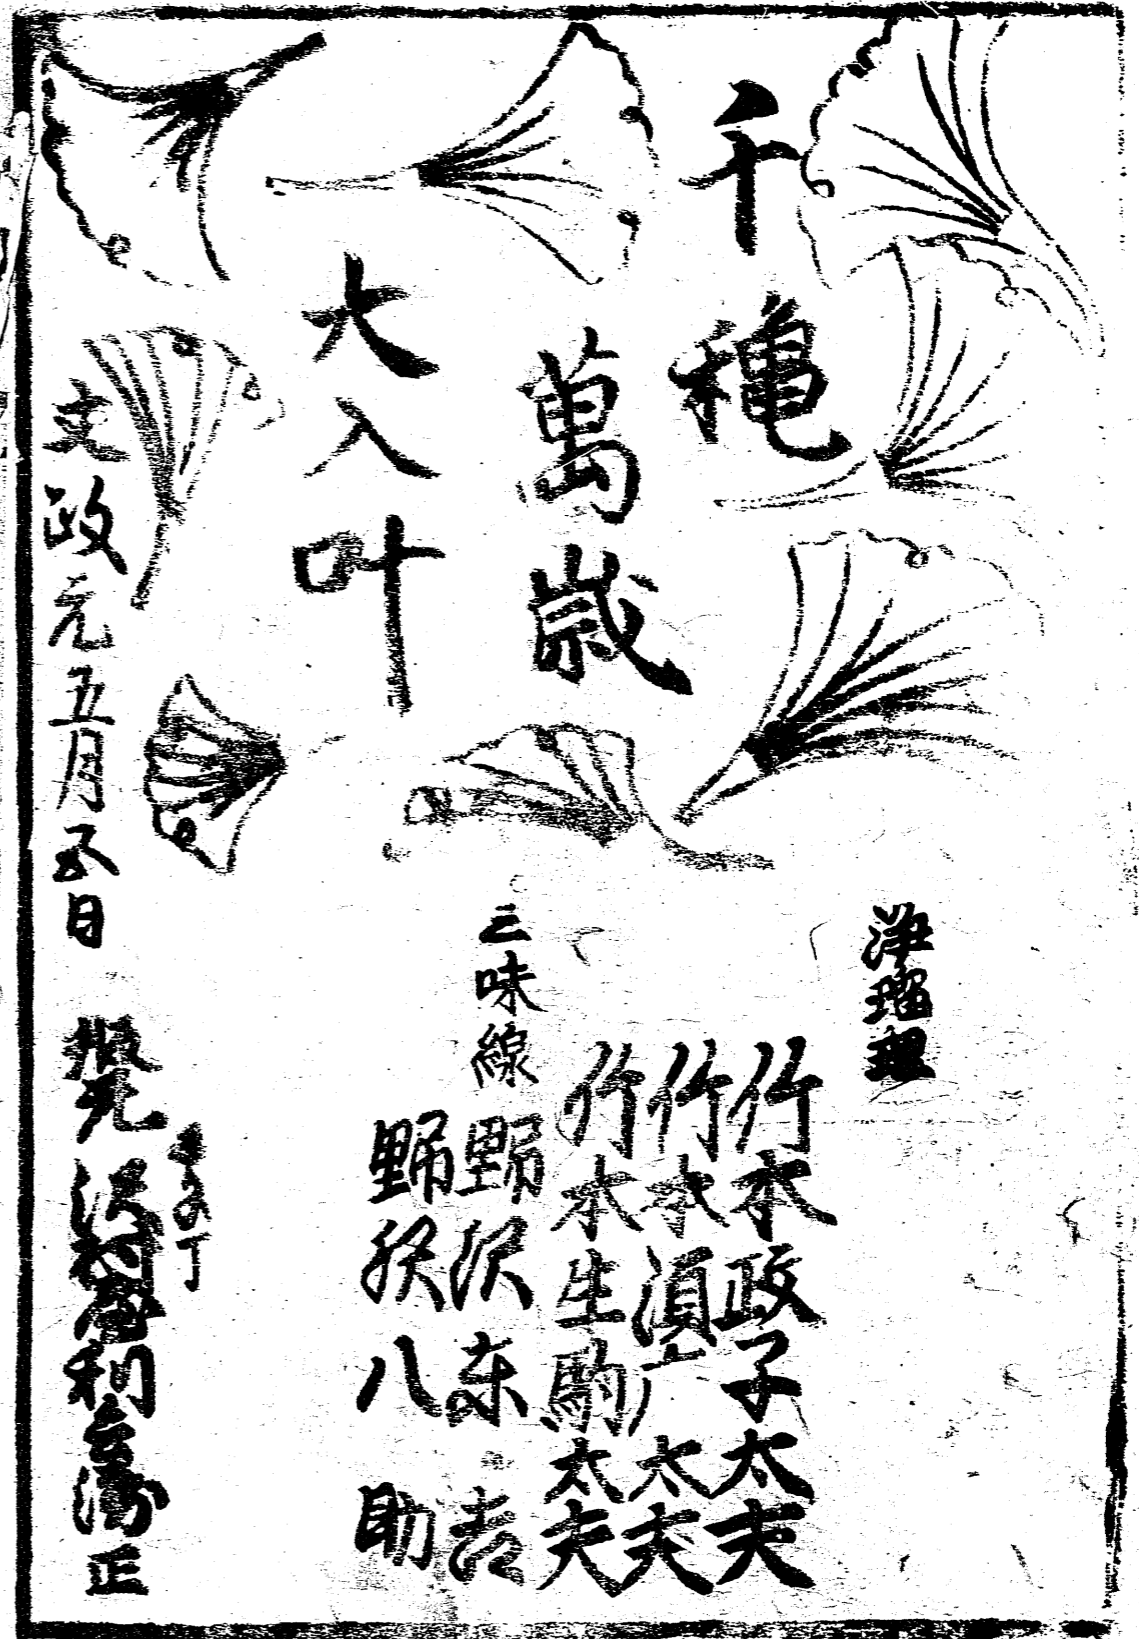 千穐
萬歳
大入叶
浄瑠理
竹本政子太夫
竹本濱广太夫
竹本生駒太夫
三味線
野沢东吉
野沢八助
文政元五月五日
沢村
利
正
丁